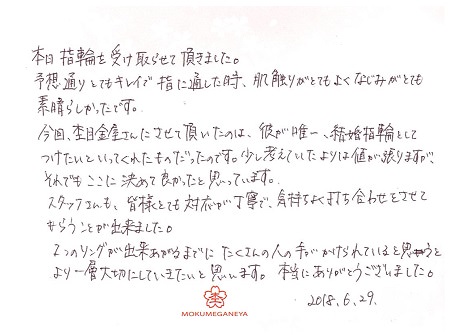 本日指輪を受け取らせて頂きました。
予想通りとてもキレイで指に通した時、肌触りがとてもよくなじみがとても
素晴らしかったです。
今回、杢目金屋さんにさせて頂いたのは、彼が唯一、結婚指輪として
つけたいといってくれたものだったのです。少し考えていたよりは値が張りますが、
それでもここに決めて良かったと思っています。
スタッフさんも、皆様とても対応が丁寧で、気持ちよく打ち合わせをさせて
もらうことが出来ました。
2つのリングが出来あがるまでにたくさんの人の手がかけられていると思うと
より一層大切にしていきたいと思います。本当にありがとうございました。
2018.6.29.
MOKUMEGANEYA